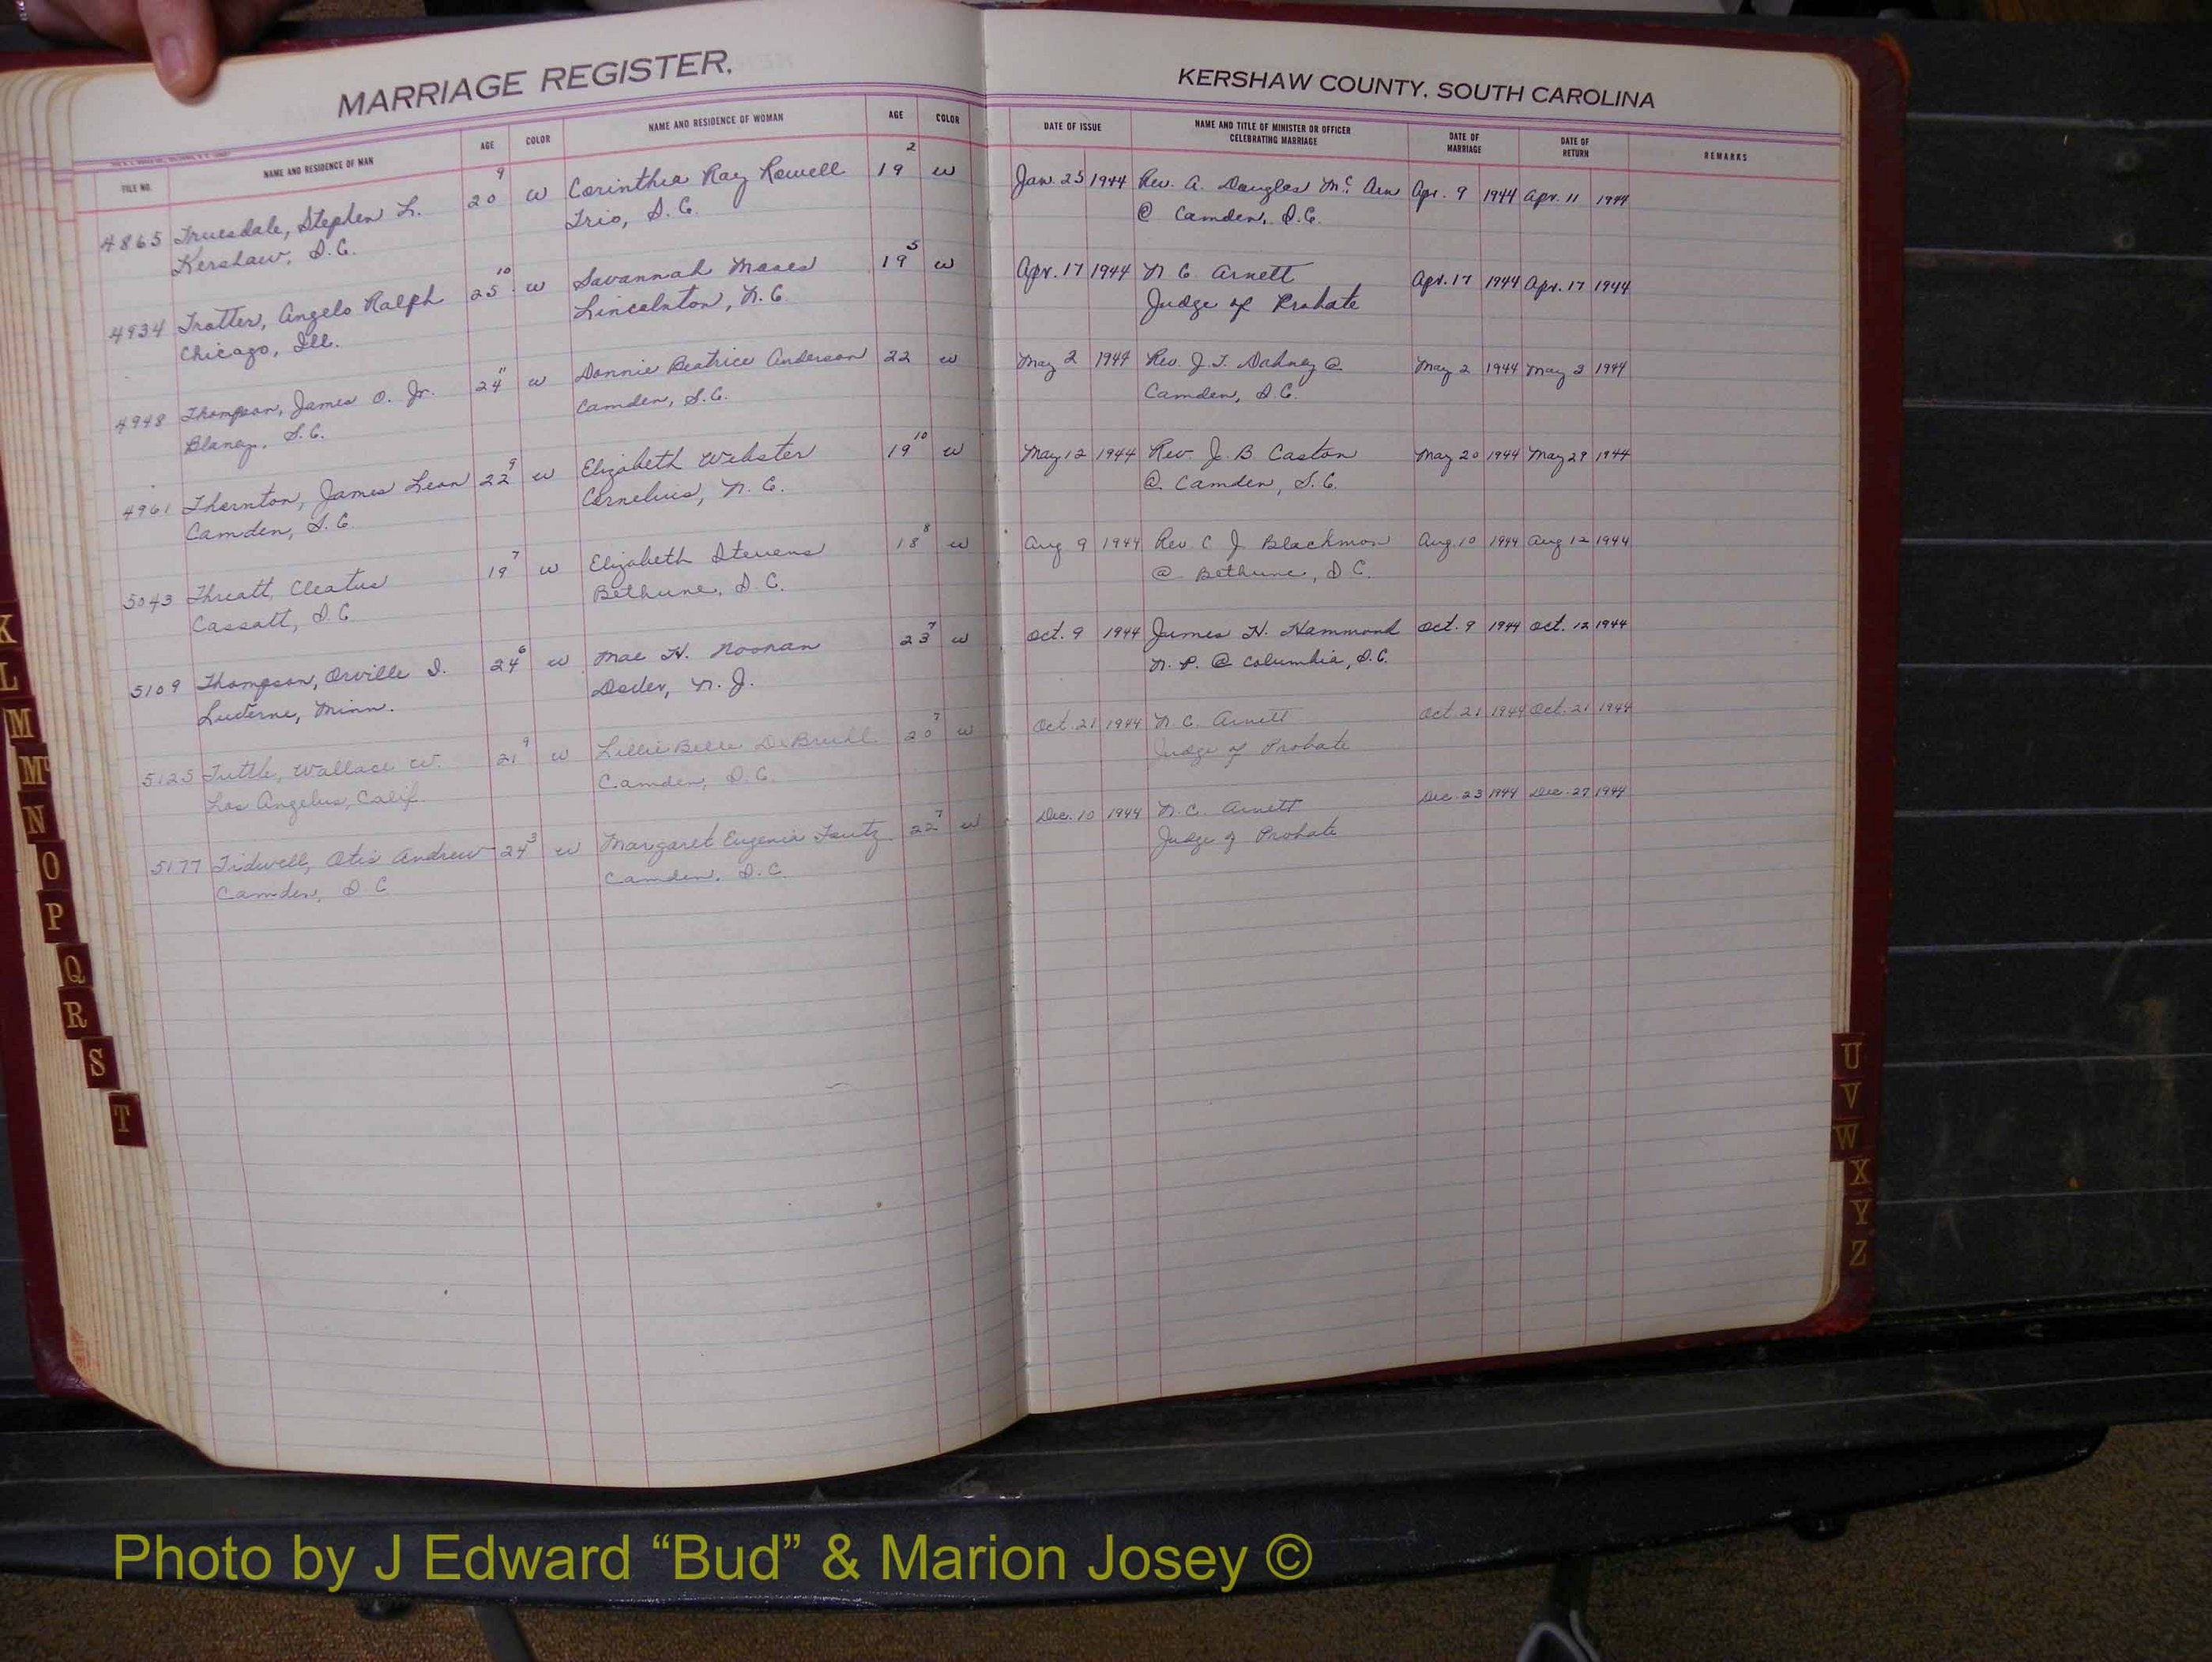 MARRIAGE REGISTER.
KERSHAW COUNTY, SOUTH CAROLINA
FILE NO. NAME AND RESIDENCE OF MAN AGE COLOR NAME AND RESIDENCE OF WOMAN AGE COLOR DATE OF ISSUE NAME AND TITLE OF MINISTER OR OFFICER CELEBRATING MARRIAGE DATE OF MARRIAGE DATE OF RETURN REMARKS
4865 Truesdale, Stephen L. 20 9 w Corinthia Ray Rowell 19 2 w Jan. 25 1944 Rev. A. Douglas Mc Arn Apr. 9 1944 Apr. 11 1944
Kershaw, S.C. Trio, S.C. @ Camden, S.C.
4934 Trotter, Angelo Ralph 25 10 w Savannah Moses 19 5 w Apr. 17 1944 N C Arnett Apr. 17 1944 Apr. 17 1944
Chicago, Ill. Lincolnton, N.C. Judge of Probate
4948 Thompson, James O. Jr. 24 11 w Donnie Beatrice Anderson 22 w May 2 1944 Rev. J.T. Dabney @ May 2 1944 May 3 1944
Blaney, S.C. Camden, S.C. Camden, S.C.
4961 Thornton, James Leon 22 9 w Elizabeth Webster 19 10 w May 12 1944 Rev. J. B Caston May 20 1944 May 29 1944
Camden, S.C. Cornelius, N.C. @ Camden, S.C.
5043 Threatt, Cleatus 19 7 w Elizabeth Stevens 18 8 w Aug 9 1944 Rev. C J. Blackmon Aug. 10 1944 Aug 12 1944
Cassatt, S.C. Bethune, S.C. @ Bethune, S C.
5109 Thompson, Orville I. 24 6 w Mae H. Noonan 23 7 w Oct. 9 1944 James H. Hammond Oct. 9 1944 Oct. 12 1944
Luverne, Minn. N. J. N. P. @ Columbia, S.C.
5125 Tuttle, Wallace W. 21 9 w Lillie Belle DeBruhl 20 7 w Oct. 21 1944 N C. Arnett Oct. 21 1944 Oct. 21 1944
Los Angelus, Calif. Camden, S.C. Judge of Probate
5177 Tidwell, Otis Andrew 24 3 w Margaret Eugenia Fautz 22 7 w Dec. 10 1944 N.C. Arnett Dec. 23 1944 Dec. 27 1944
Camden, S.C. Camden, S.C. Judge of Probate
K
L
M
Mc
N
O
P
Q
R
S
T
U
V
W
X
Y
Z
Photo by J Edward “Bud” & Marion Josey ©